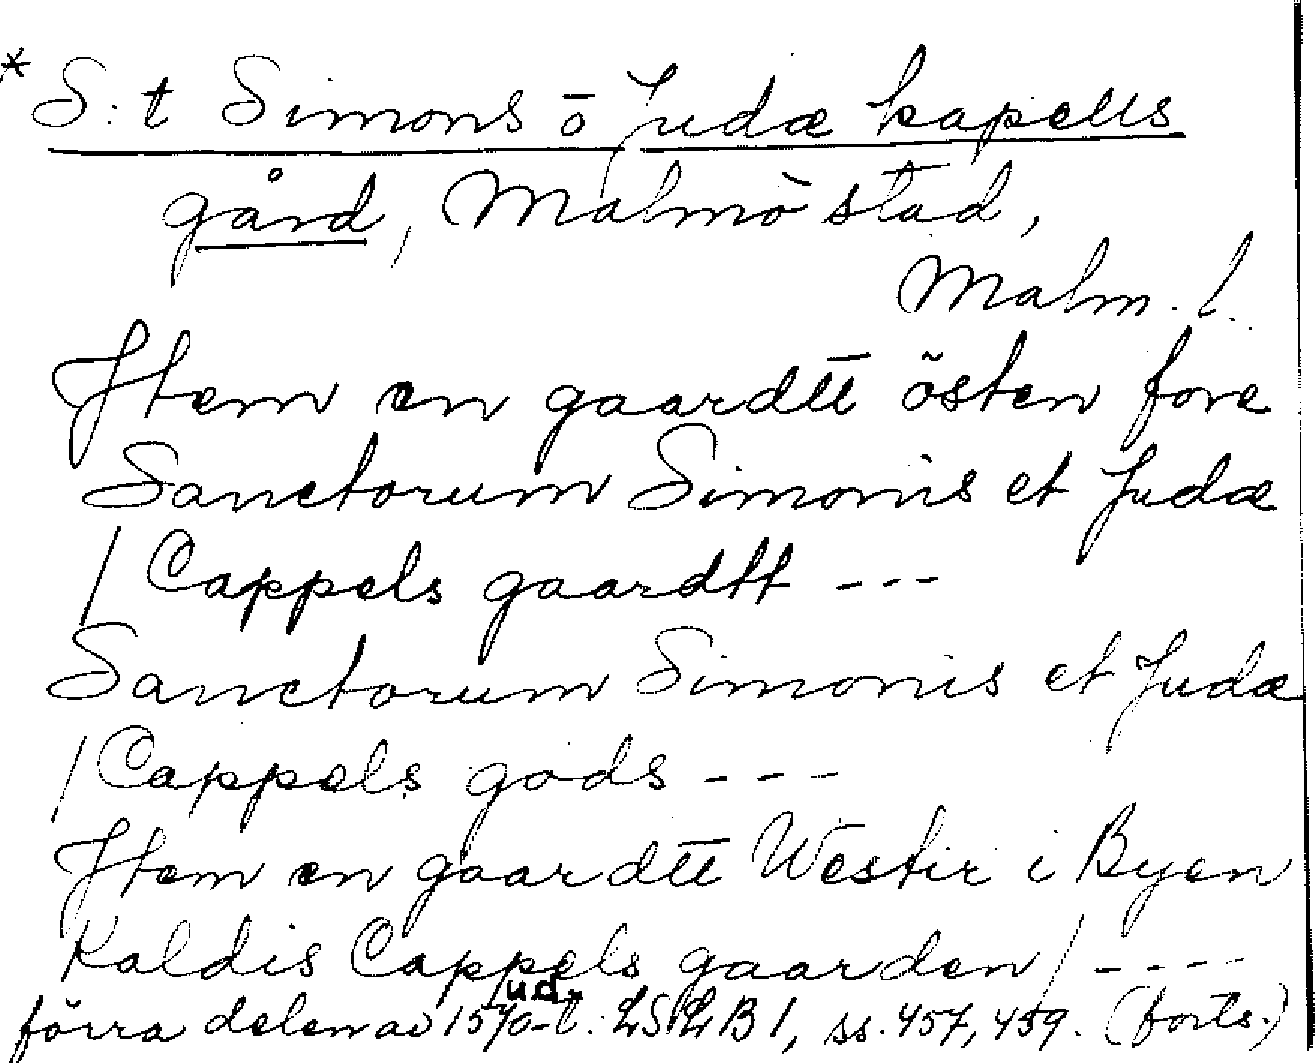 * S:t Simons o Judæ kapells
gård, Malmö stad,
Malm. l.
Item en gaardtt östen fore
Sanctorum Simonis et Judæ
/ Cappels gaardtt ---
Sanctorum Simonis et Judæ
/ Cappels gods ---
Item en gaardtt Westir i Byen
Kaldis Cappels gaarden / ----
ud.
förra delen av 1570-t. LSLB 1, ss. 457, 459. (forts.)